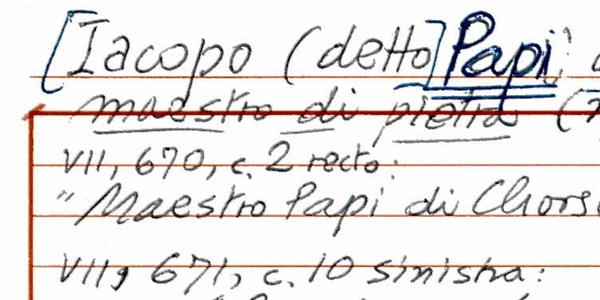 [Iacopo (detto] Papi,
maestro di pietra (
VII, 670, c. 2 recto:
"Maestro Papi di Chors
VII, 671, c. 10 sinistra: